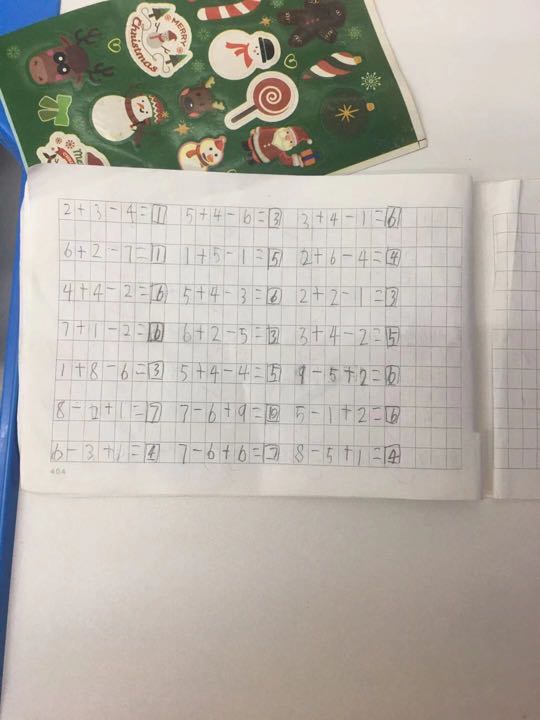 MERRY Christmas
2+3-4=1 5+4-6=3 3+4-1=6
6+2-7=1 1+5-1=5 2+6-4=4
4+4-2=6 5+4-3=6 2+2-1=3
7+1-2=6 6+2-5=3 3+4-2=5
1+8-6=3 5+4-4=5 9-5+2=6
8-2+1=7 7-6+9=10 5-1+2=6
6-3+1=4 7-6+6=7 8-5+1=4
404